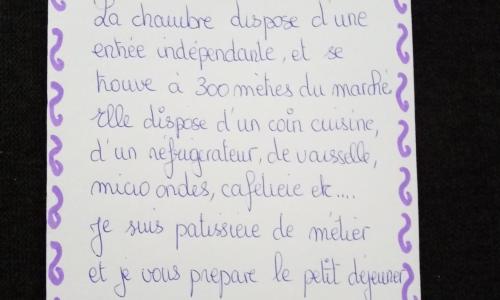 La chambre dispose d'une
entrée indépendante, et se
trouve à 300 mètres du marché
Elle dispose d'un coin cuisine,
d'un réfrigerateur, de vaisselle,
micro ondes, cafetieie etc....
Je suis patissiere de métier
et je vous prepare le petit déjeuner